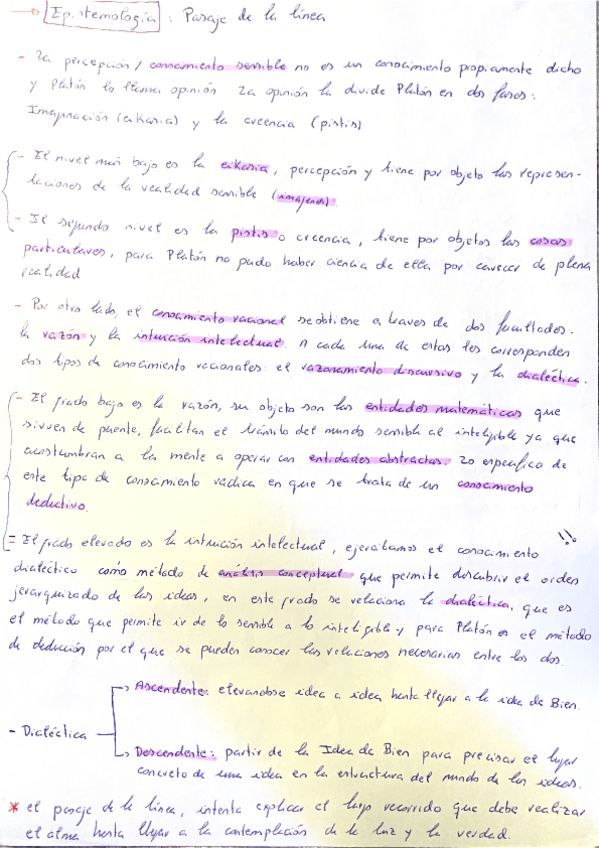 → Epistemología : Pasaje de la línea
- La percepción / conocimiento sensible no es un conocimiento propiamente dicho
y Platón lo llama opinión La opinión la divide Platón en dos fases:
Imaginación (eikasia) y la creencia (pistis)
- El nivel más bajo es la eikasia, percepción y tiene por objeto las represen-
taciones de la realidad sensible (imágenes).
- El segundo nivel es la pistis o creencia, tiene por objetos las cosas
particulares, para Platón no pudo haber ciencia de ella por carecer de plena
realidad
- Por otro lado, el conocimiento racional se obtiene a traves de dos facultades.
la razón y la intuición intelectual. A cada una de estas les corresponden
dos tipos de conocimiento racionales: el razonamiento discursivo y la dialéctica.
- El grado bajo es la razón, su objeto son las entidades matemáticas que
sirven de puente, facilitan el tránsito del mundo sensible al inteligible ya que
acostumbran a la mente a operar con entidades abstractas. Lo especifico de
este tipo de conocimiento radica en que se trata de un conocimiento
deductivo.
- El grado elevado es la intuición intelectual, ejercitamos el conocimiento !!!
dialéctico como método de análisis conceptual que permite descubrir el orden
jerarquizado de las ideas, en este grado se relaciona la dialéctica, que es
el método que permite ir de lo sensible a lo inteligible y para Platón es el método
de deducción por el que se pueden conocer las relaciones necesarias entre los dos.
- Dialéctica
Ascendente: elevandose idea a idea hasta llegar a la idea de Bien.
Descendente: partir de la Idea de Bien para precisar el lugar
concreto de una idea en la estructura del mundo de las ideas.
* el pasaje de la línea, intenta explicar el largo recorrido que debe realizar
el alma hasta llegar a la contemplación de la luz y la verdad.